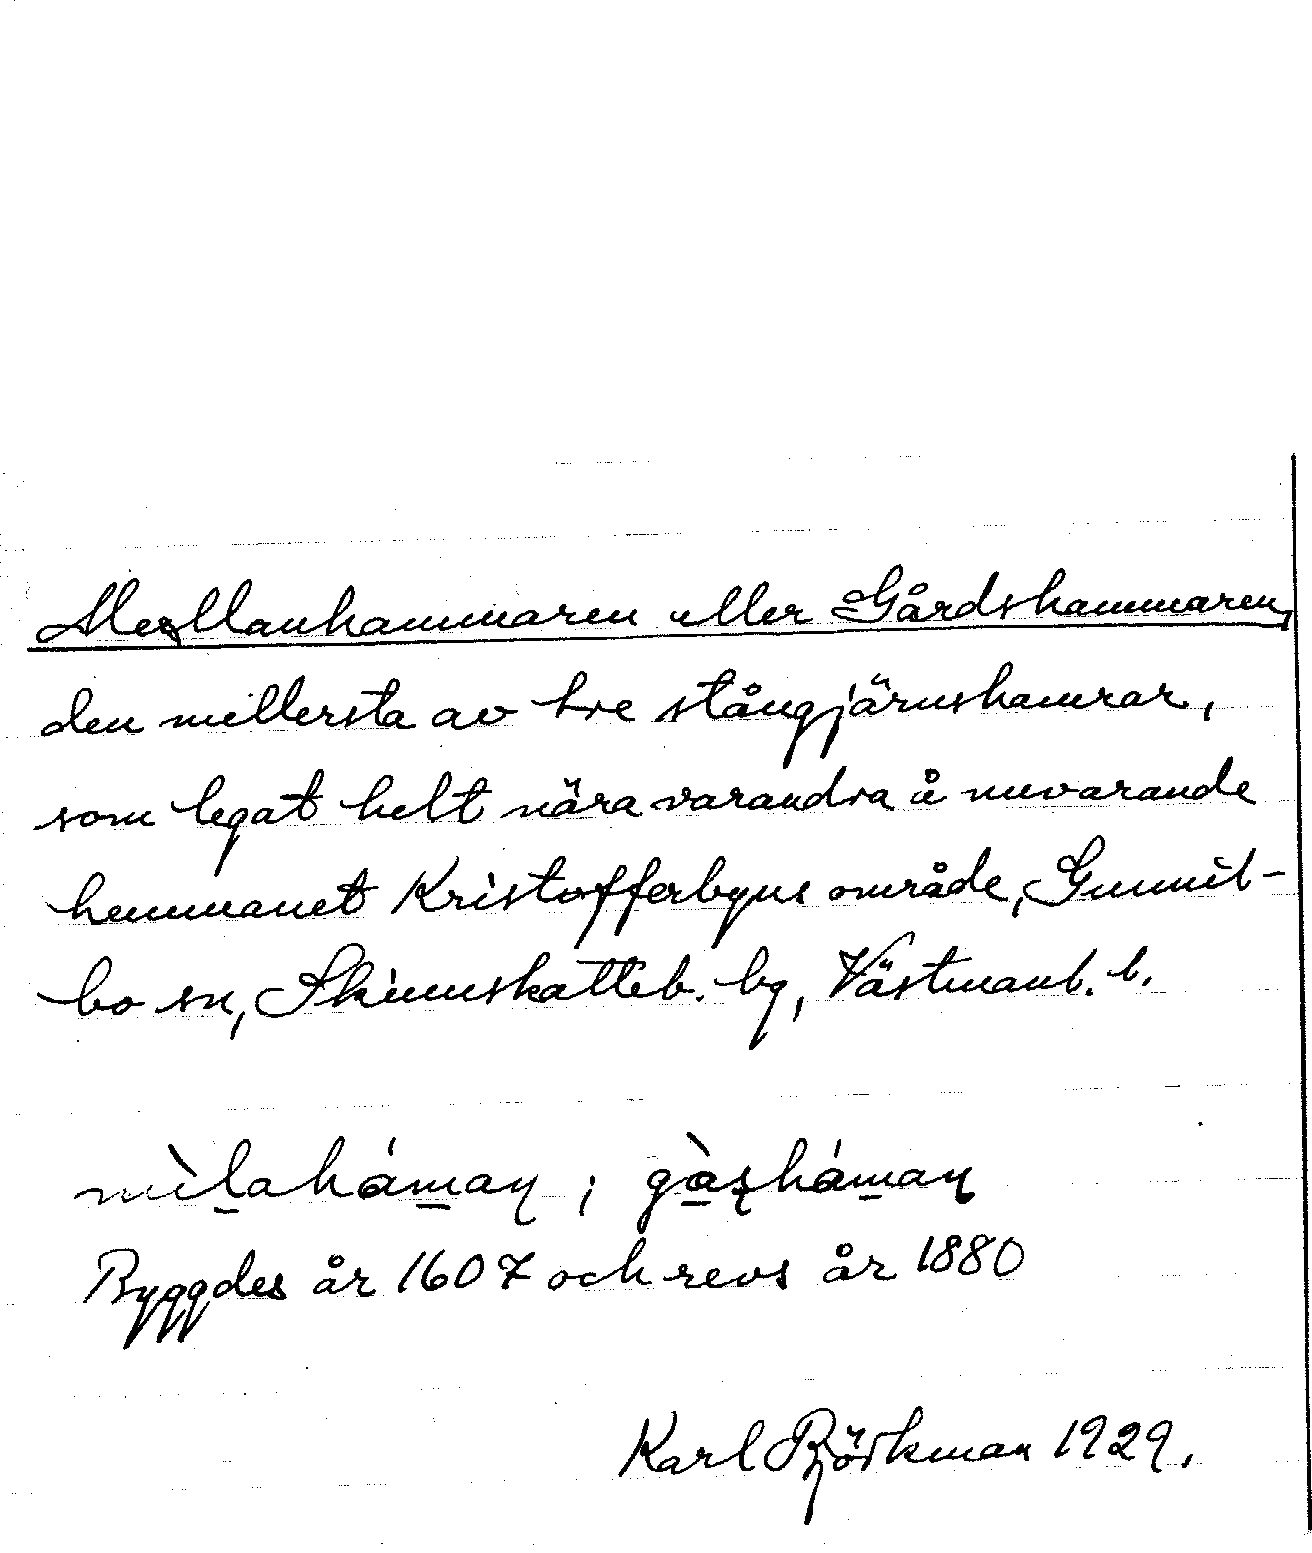 Mellanhammaren eller Gårdshammaren,
den mellersta av tre stångjärnshamrar,
som legat helt nära varandra å nuvarande
hemmanet Kristofferbyns område, Gunnil-
bo sn, Skinnskatteb. bg, Västmanl. l.
mìlaháman ; gàṣháman
Byggdes år 1607 och revs år 1880
Karl Björkman 1929.